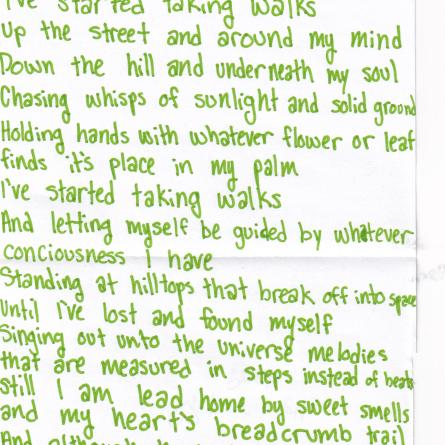 I've started taking walks
Up the street and around my mind
Down the hill and underneath my soul
Chasing whisps of sunlight and solid ground
Holding hands with whatever flower or leaf
finds it's place in my palm
I've started taking walks
And letting myself be guided by whatever
conciousness I have
Standing at hilltops that break off into space
Until I've lost and found myself
Singing out unto the universe melodies
that are measured in steps instead of beats
Still I am lead home by sweet smells
and my heart's breadcrumb trail
And although